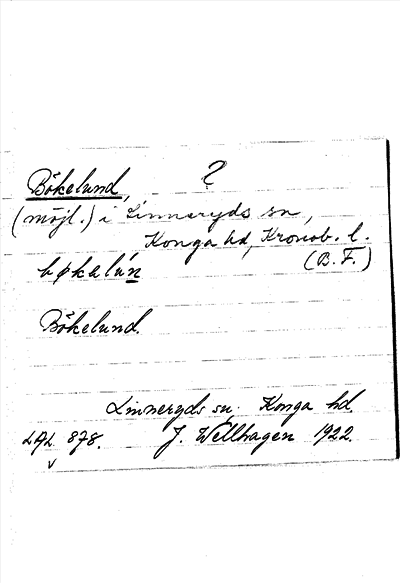 Bökelund, ?
(möjl.) i Linneryds sn,
Konga hd, Kronob. l.
(B. F.)
bøkalún
Bökelund.
Linneryds sn. Konga hd.
878. J. Wellhagen 1922.